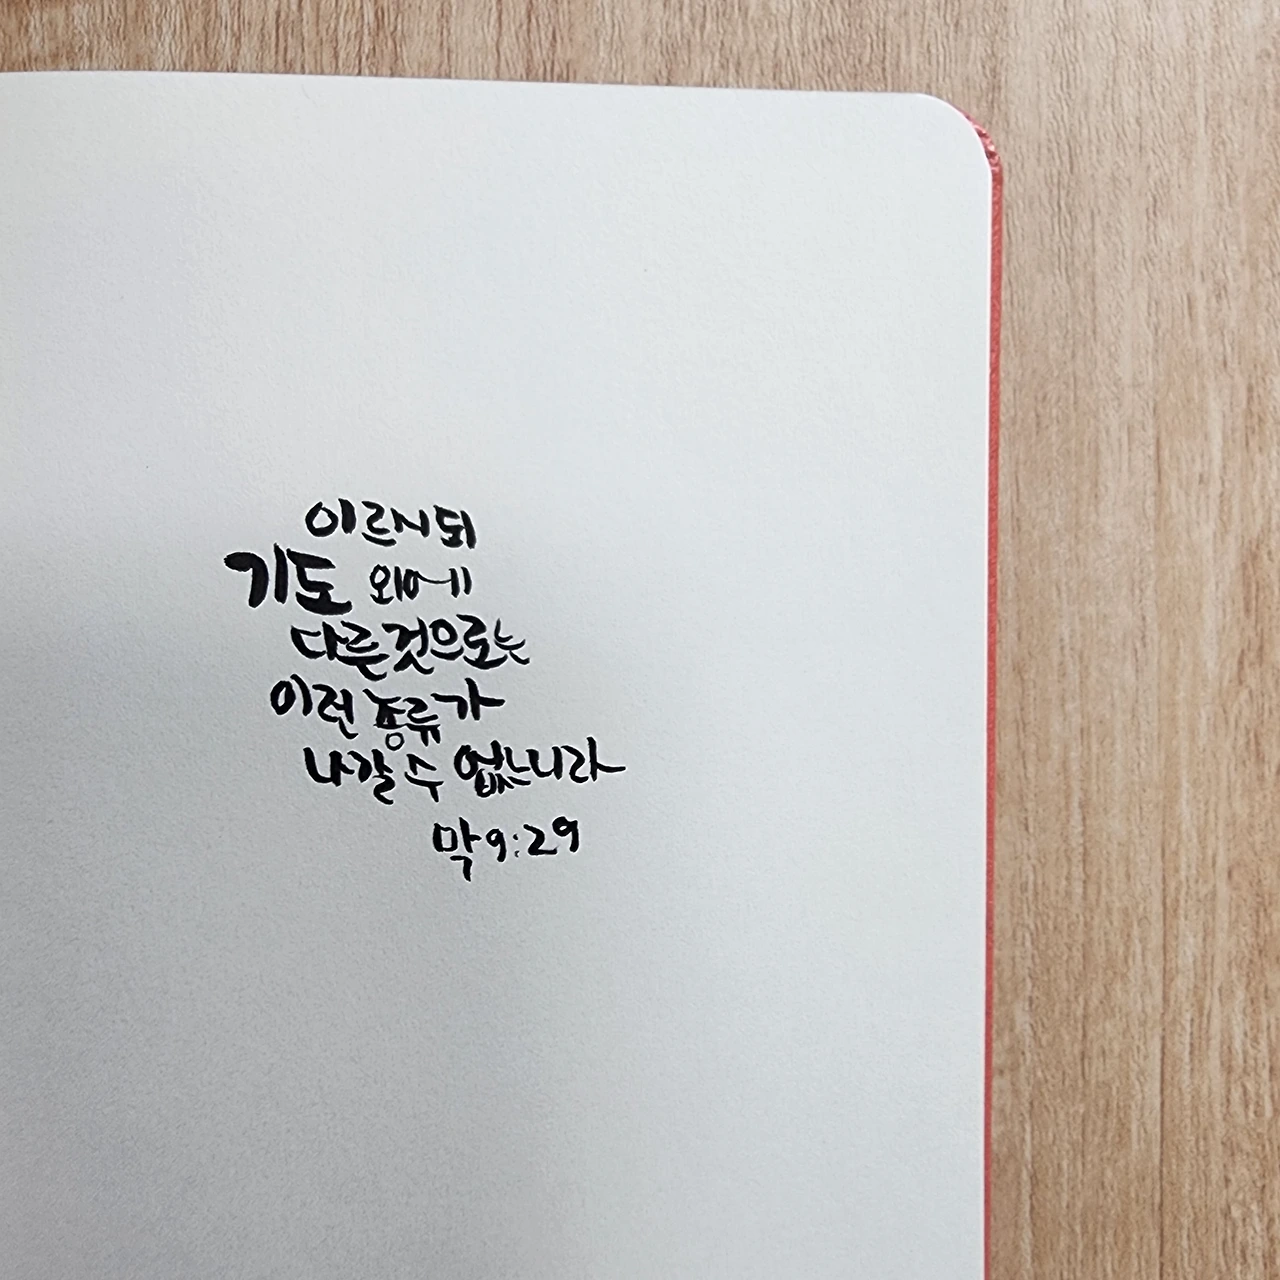 이르시되
기도 외에
다른 것으로는
이런 종류가
나갈 수 없느니라
막 9:29